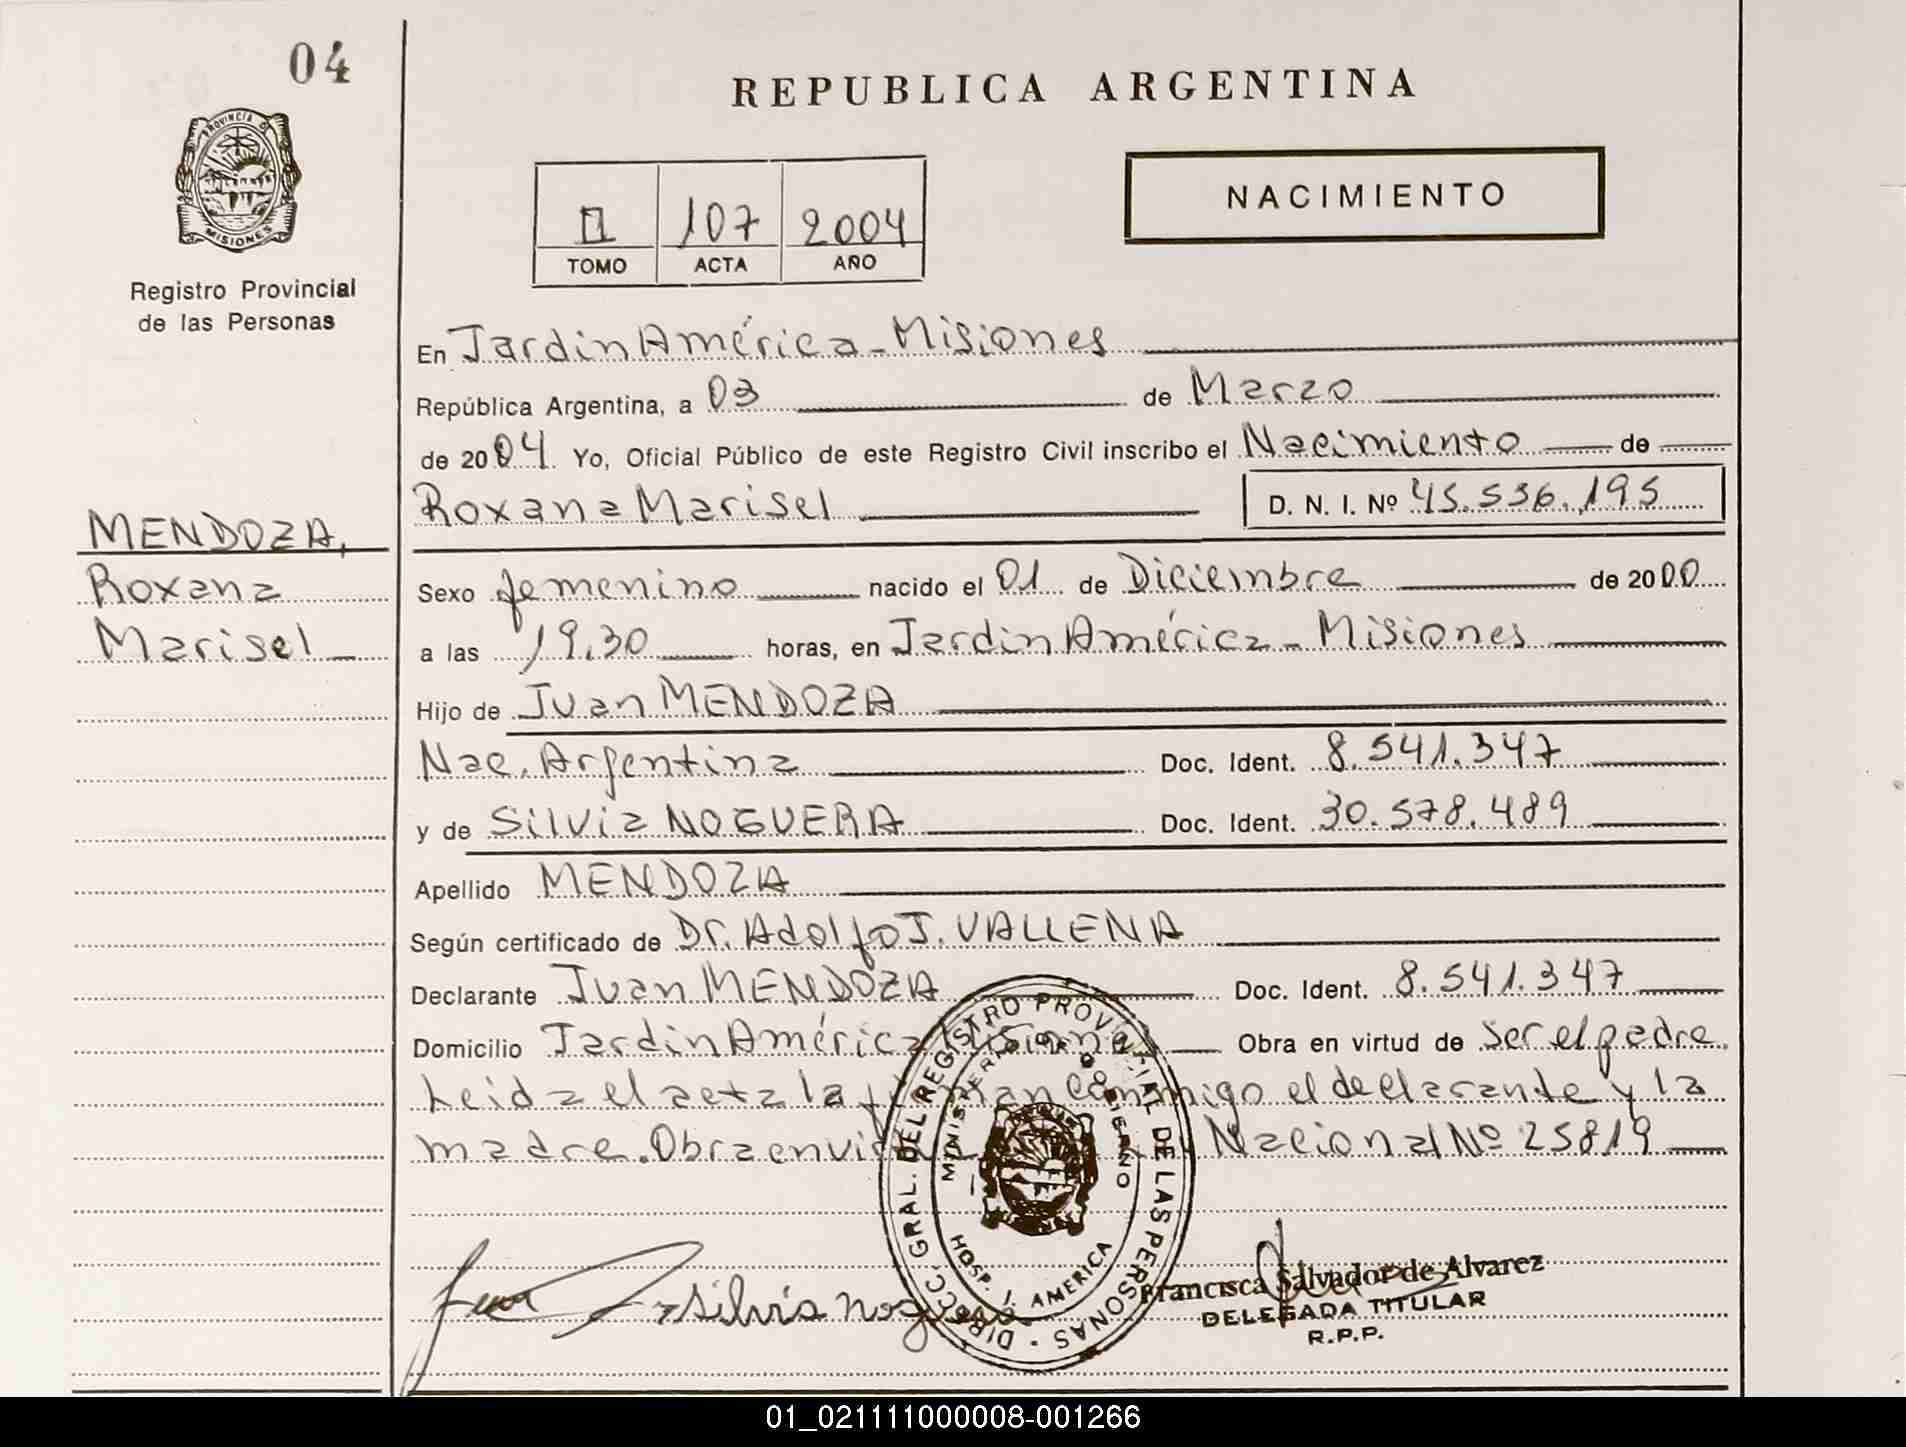 04
REPUBLICA ARGENTINA
PROVINCIA D
MISIONES
Registro Provincial
de las Personas
107 2004
TOMO ACTA AÑO
NACIMIENTO
En Jardin América - Misiones
República Argentina, a 03 de Marzo
de 2004. Yo, Oficial Público de este Registro Civil inscribo el Nacimiento de
Roxana Marisel D. N. I. Nº 45.536.195
MENDOZA,
Roxana
Marisel
Sexo femenino nacido el 01 de Diciembre de 2000
a las 19,30 horas, en Jardin América - Misiones
Hijo de Juan MENDOZA
Nac. Argentina Doc. Ident. 8.541.347
y de Silvia NOGUERA Doc. Ident. 30.578.489
Apellido MENDOZA
Según certificado de Dr. Adolfo J. VALLENA
Declarante Juan MENDOZA Doc. Ident. 8.541.347
Domicilio Jardin América Misiones Obra en virtud de ser el padre.
Leida el acta la firman conmigo el declarante y la
madre. Obra en Nacional Nº 25819
DIRECC. GRAL. DEL REGISTRO PROVINCIAL DE LAS PERSONAS
MINISTERIO DE GOBIERNO
HOSP. J. AMERICA
Silvia Noguera
Francisca Salvador de Alvarez
DELEGADA TITULAR
R.P.P.
01_021111000008-001266